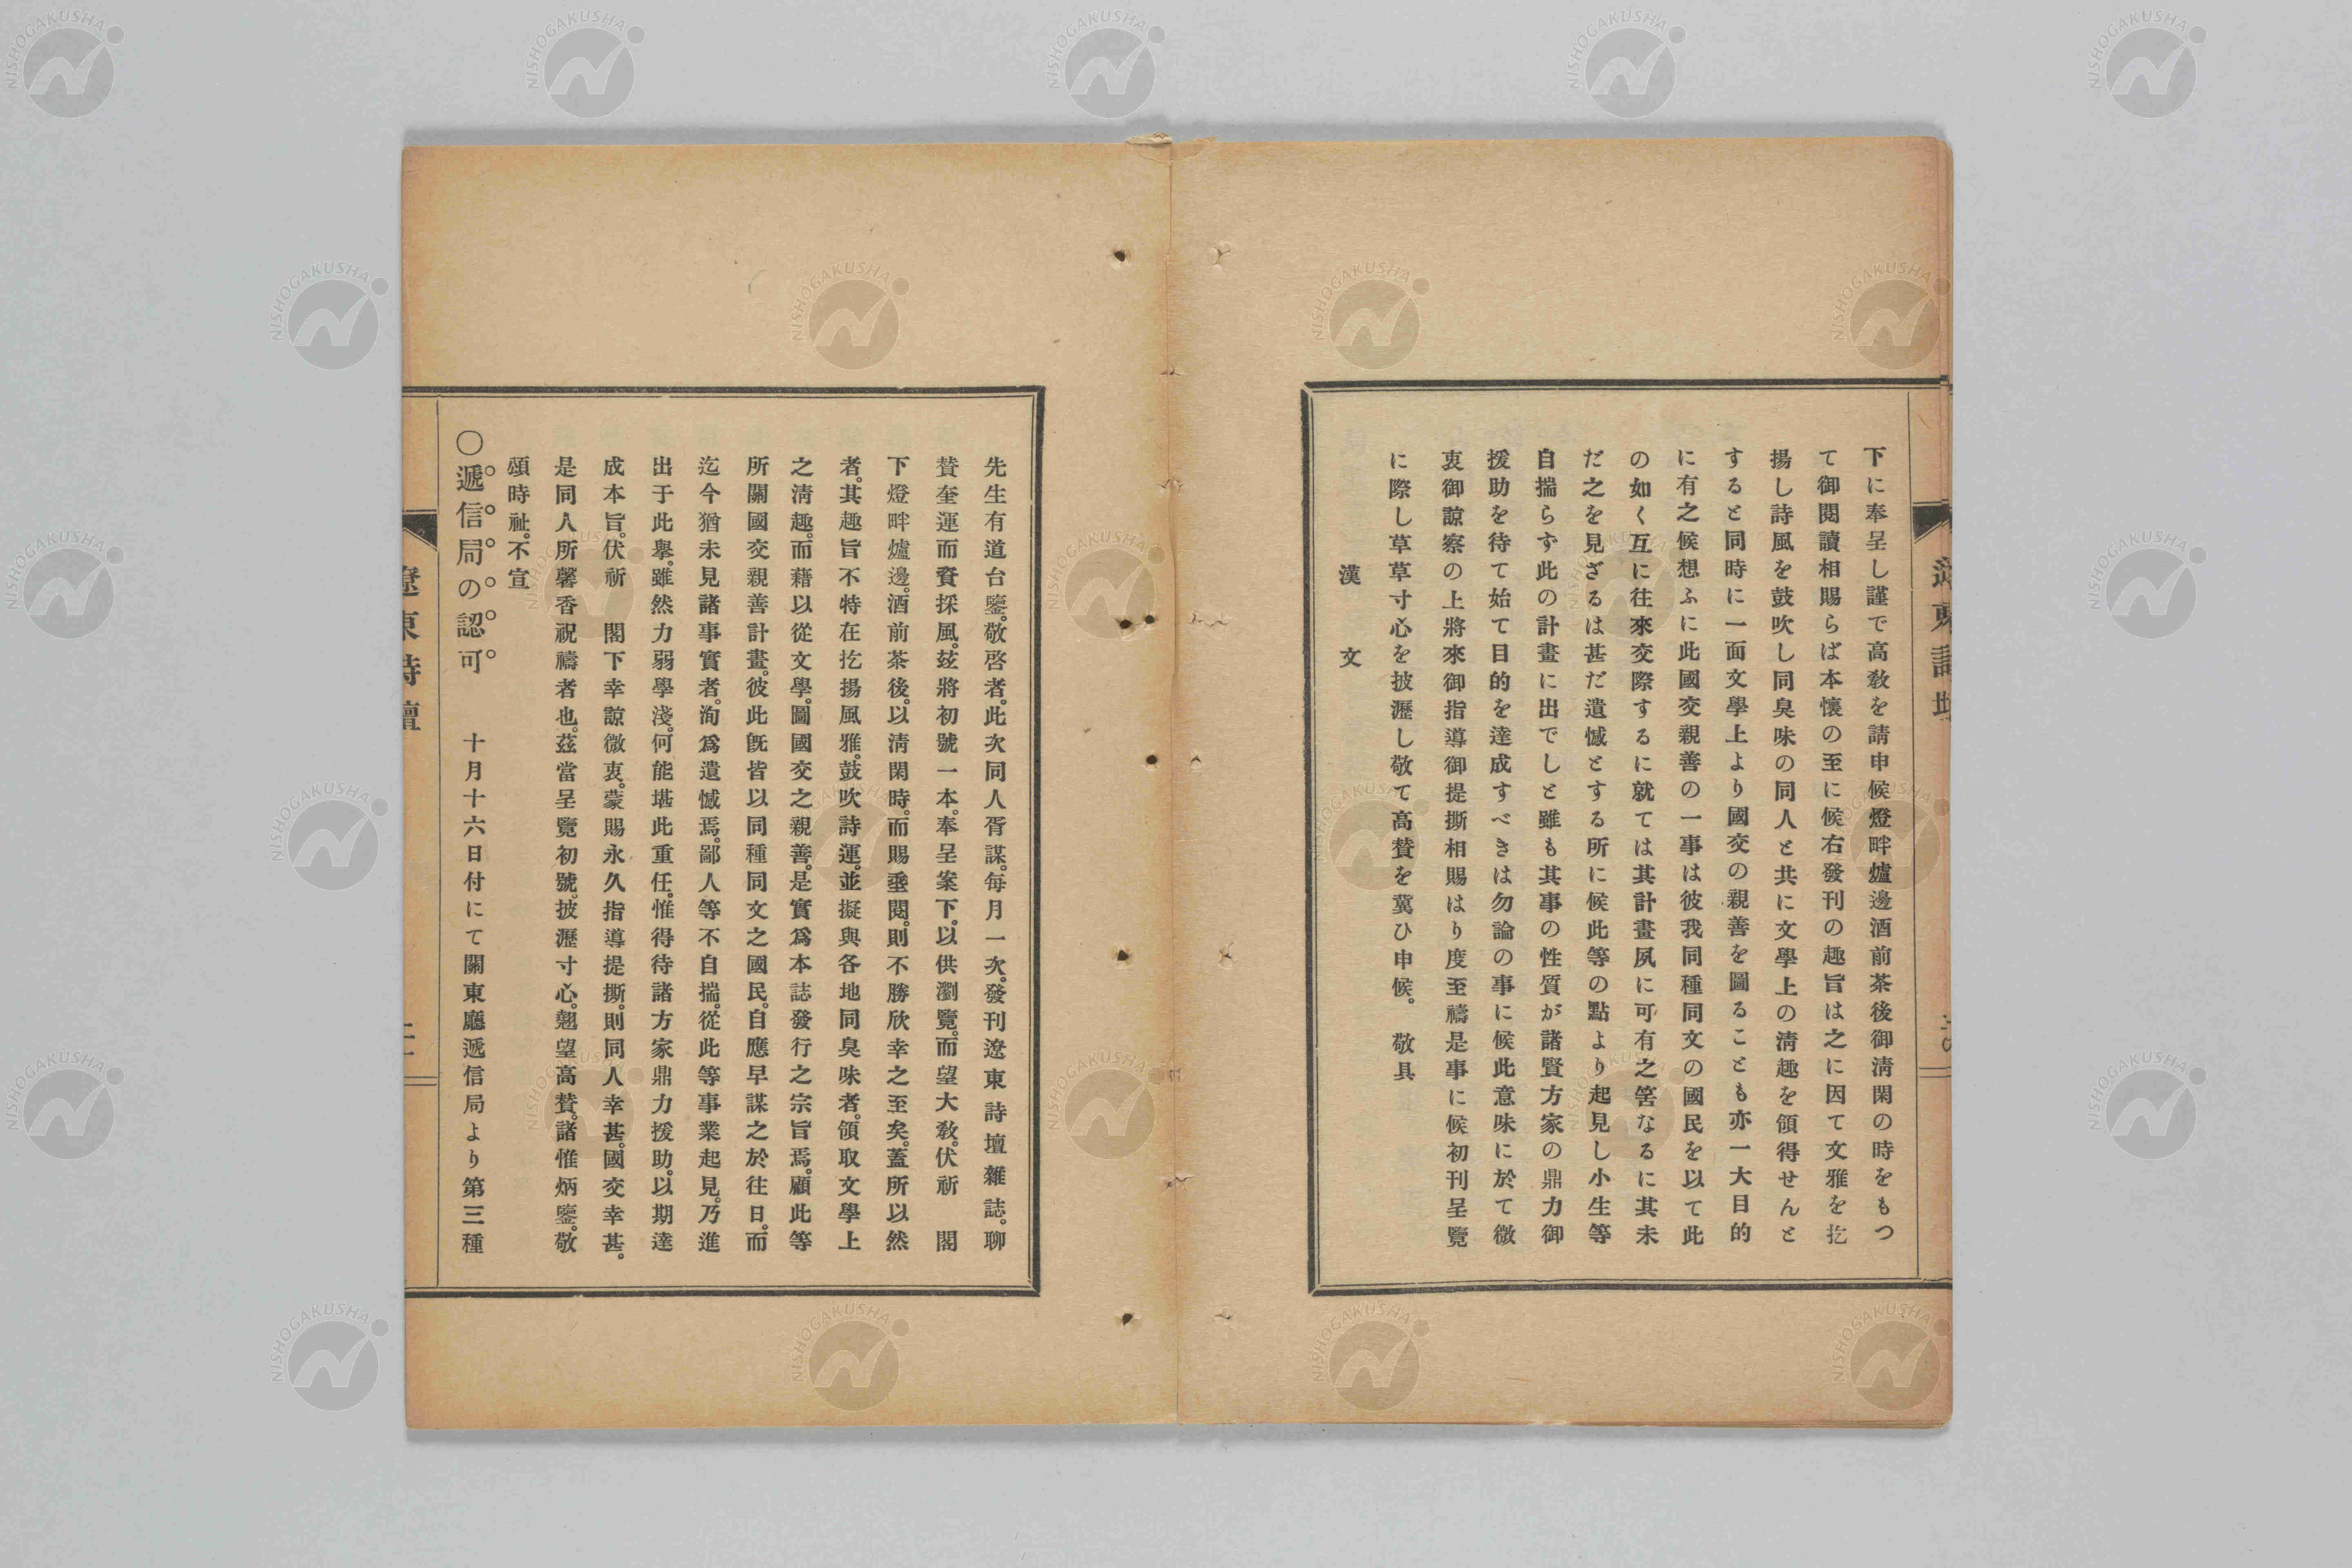 下に奉呈し謹で高敎を請申候燈畔爐邊酒前茶後御淸閑の時をもつ
て御閲讀相賜らば本懷の至に候右發刊の趣旨は之に因て文雅を扢
揚し詩風を鼓吹し同臭味の同人と共に文學上の淸趣を領得せんと
すると同時に一面文學上より國交の親善を圖ることも亦一大目的
に有之候想ふに此國交親善の一事は彼我同種同文の國民を以て此
の如く互に往來交際するに就ては其計畫夙に可有之筈なるに其未
だ之を見ざるは甚だ遺憾とする所に候此等の點より起見し小生等
自揣らず此の計畫に出でしと雖も其事の性質が諸賢方家の鼎力御
援助を待て始て目的を達成すべきは勿論の事に候此意味に於て微
衷御諒察の上將來御指導御提撕相賜はり度至禱是事に候初刊呈覽
に際し草草寸心を披瀝し敬て高賛を冀ひ申候。　敬具
漢　文
先生有道台鑒。敬啓者。此次同人胥謀。每月一次。發刊遼東詩壇雜誌。聊
賛奎運而資採風。玆將初號一本。奉呈案下。以供瀏覽。而望大敎。伏祈　閣
下燈畔爐邊。酒前茶後。以淸閑時。而賜埀閲。則不勝欣幸之至矣。蓋所以然
者。其趣旨不特在扢揚風雅。鼓吹詩運。並擬與各地同臭味者。領取文學上
之淸趣。而藉以從文學。圖國交之親善。是實爲本誌發行之宗旨焉。顧此等
所關國交親善計畫。彼此旣皆以同種同文之國民。自應早謀之於往日。而
迄今猶未見諸事實者。洵爲遺憾焉。鄙人等不自揣。從此等事業起見。乃進
出于此擧。雖然力弱學淺。何能堪此重任。惟得待諸方家鼎力援助。以期達
成本旨。伏祈　閣下幸諒微衷。蒙賜永久指導提撕。則同人幸甚。國交幸甚。
是同人所馨香祝禱者也。茲當呈覽初號。披瀝寸心。翹望高賛。諸惟炳鑒。敬
頌時祉。不宣
〇遞信局の認可　十月十六日付にて關東廳遞信局より第三種
遼東詩壇